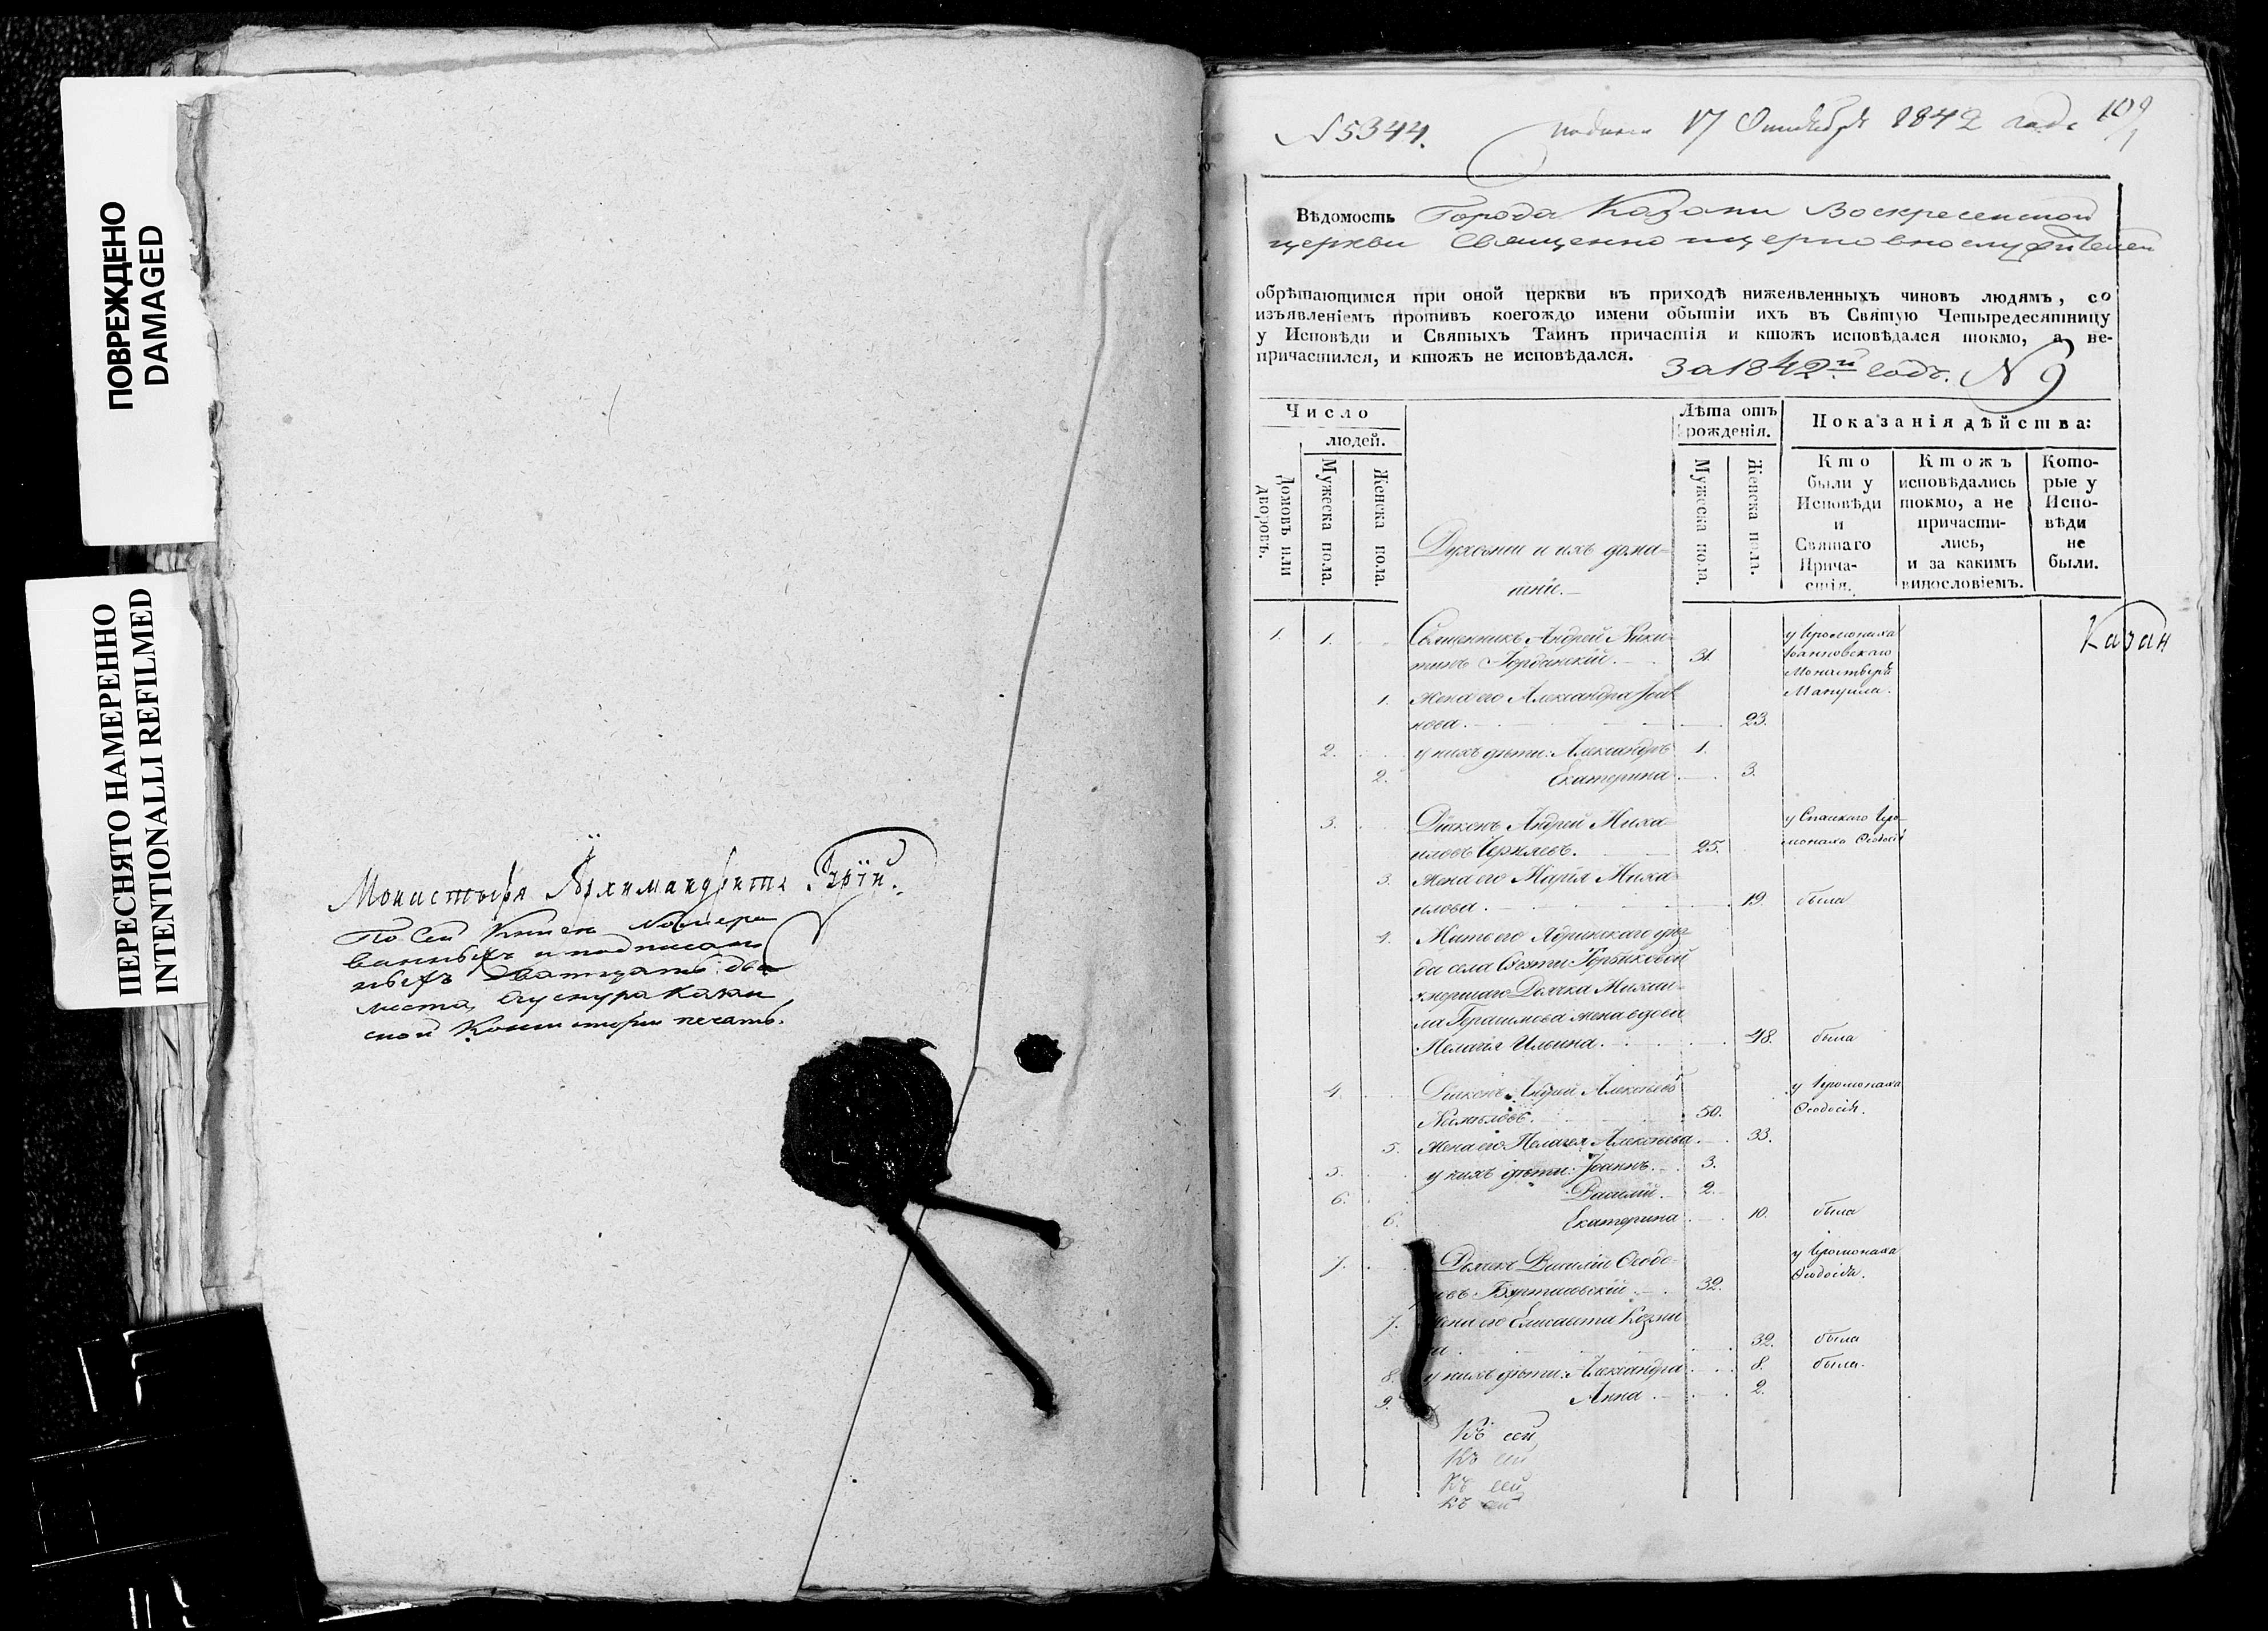 ПОВРЕЖДЕНО
DAMAGED
ПЕРЕСНЯТО НАМЕРЕННО
INTENTIONALLI REFILMED
Монастыря Архимандритъ Гурій.
По сей Книге Номеро
ванныхъ и подписан
ныхъ Дватцать два
листа, Ау шнура Казан
ской Консисторіи печать.
N 5344. подана 17 Октября 1842 года 109
Вѣдомость Города Казани Воскресенской
церкви Священно церковнослужителей
обрѣтающимся при оной церкви въ приходѣ нижеявленныхъ чиновъ людямъ, со
изъявленіемъ противъ коегождо имени обытіи ихъ въ Святую Четыредесятницу
у Исповѣди и Святыхъ Таинъ причастія и ктожъ исповѣдался токмо, а не-
причастился, и ктожъ не исповѣдался.
За 1842й годъ. N 9
Число
людей.
Домовъ или дворовъ.
Мужеска пола.
Женска пола.
Духовныи и ихъ дома-
шніе.
Лѣта отъ
рожденія.
Мужеска пола.
Женска пола.
Показанія дѣйства:
Кто
были у
Исповѣди
и
Святаго
Прича-
стія.
Ктожъ
исповѣдались
токмо, а не
причасти-
лись,
и за какимъ
винословіемъ.
Кото-
рые у
Испо-
вѣди
не
были.
1. 1. Священникъ Андрей Ники- у Іеромонаха
тинъ Іорданскій. 31. Іоанновскаго
Монастыря
1. Жена его Александра Іоак Мануила.
кова. 23.
2. у нихъ дѣти: Александръ 1.
2. Екатерина 3.
3. Діаконъ Андрей Миха- у Спаскаго Іеро-
иловъ Черняевъ. 25. монаха Ѳеодосія
3. Жена его Марія Миха-
илова. 19. была
4. Мать его Ядринскаго уѣз
да села
умершаго Дьячка Михаи-
ла Герасимова жена вдова
Пелагія Ильина. 48. была
4. Діаконъ Андрей Алексѣевъ у Іеромонаха
Несмѣловъ. 50. Ѳеодосія.
5. Жена его Пелагея Алексѣева. 33.
5. у нихъ дѣти: Іоаннъ. 3.
6. Василій. 2.
6. Екатерина 10. была
7. Дьячекъ Василій Ѳеодо- у Іеромонаха
овъ 32. Ѳеодосія.
7. ена его Елисавета Козми
на. 32. была
8. у нихъ дѣти: Александра 8. была.
9. Анна. 2.
Казан
Къ сей
Къ сей
Къ сей
Къ сей